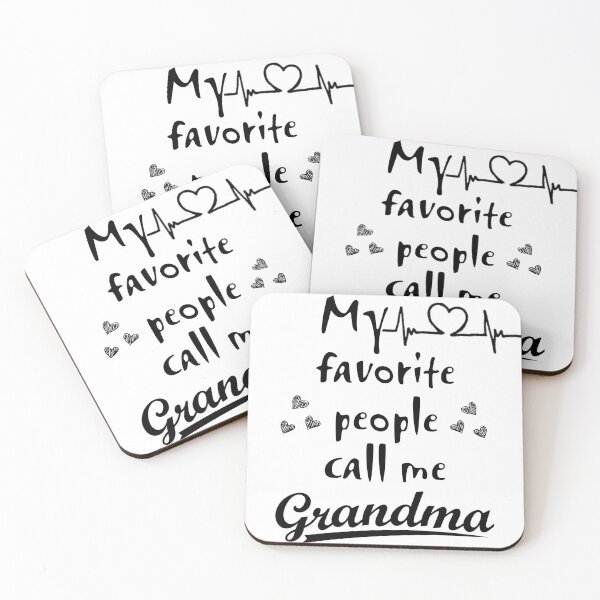 My
favorite
My
favorite
people
call me
My
favorite
people
call
My
favorite
people
call me
Grandma